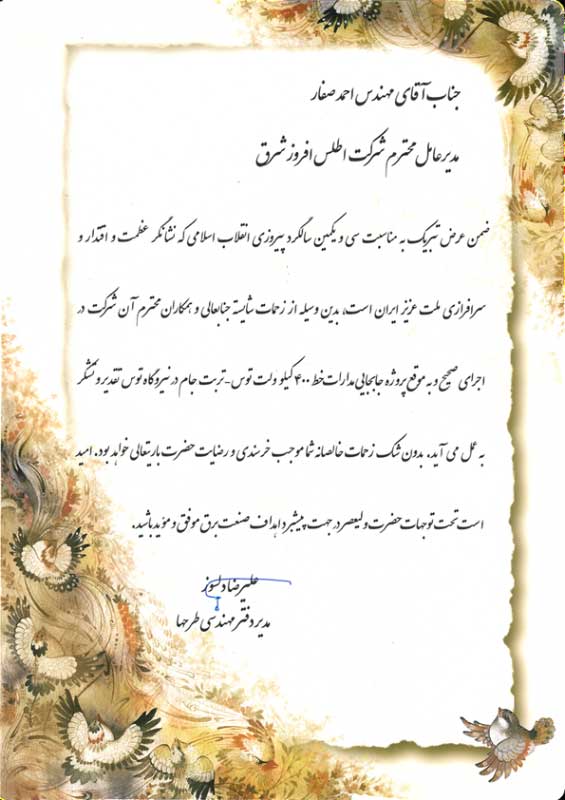 جناب آقای مهندس احمد صفار
مدیر عامل محترم شرکت اطلس افروز شرق
ضمن عرض تبریک به مناسبت سی و یکمین سالگرد پیروزی انقلاب اسلامی که نشانگر عظمت و اقتدار و
سرافرازی ملت عزیز ایران است، بدین وسیله از زحمات شایسته جنابعالی و همکاران محترم آن شرکت در
اجرای صحیح و به موقع پروژه جابجایی مدارات خط ۴۰۰ کیلو ولت توس-تربت جام در نیروگاه توس تقدیر و تشکر
به عمل می آید. بدون شک زحمات خالصانه شما موجب خرسندی و رضایت حضرت باریتعالی خواهد بود. امید
است تحت توجهات حضرت ولیعصر در جهت پیشبرد اهداف صنعت برق موفق و مؤید باشید.
علیرضا دلسوز
مدیر دفتر مهندسی طرحها